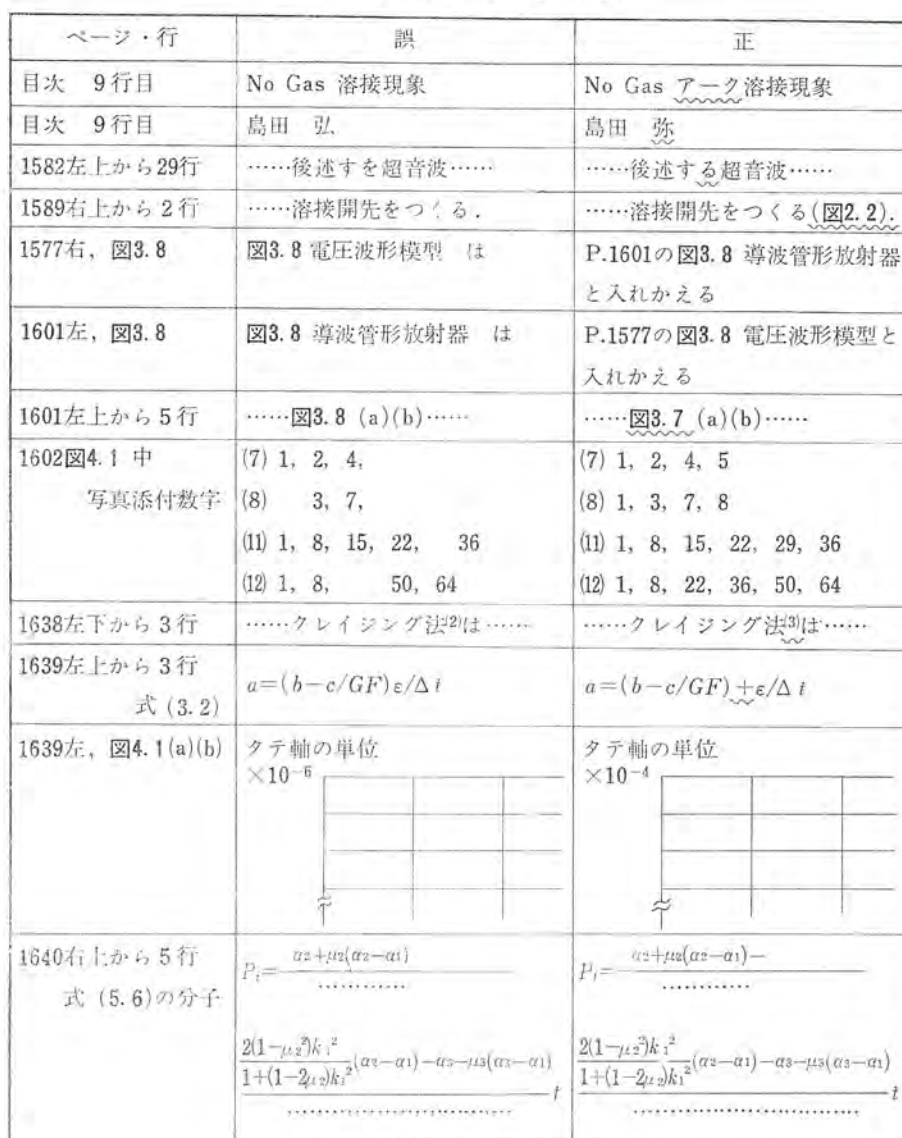 ページ・行 誤 正
目次 9行目 No Gas 溶接現象 No Gas アーク溶接現象
目次 9行目 島田 弘 島田 弥
1582左上から29行 ……後述すを超音波…… ……後述する超音波……
1589右上から2行 ……溶接開先をつくる. ……溶接開先をつくる(図2.2).
1577右,図3.8 図3.8 電圧波形模型 は P.1601の図3.8 導波管形放射器
と入れかえる
1601左,図3.8 図3.8 導波管形放射器 は P.1577の図3.8 電圧波形模型と
入れかえる
1601左上から5行 ……図3.8 (a)(b)…… ……図3.7 (a)(b)……
1602図4.1 中 (7) 1, 2, 4, (7) 1, 2, 4, 5
写真添付数字 (8) 3, 7, (8) 1, 3, 7, 8
(11) 1, 8, 15, 22, 36 (11) 1, 8, 15, 22, 29, 36
(12) 1, 8, 50, 64 (12) 1, 8, 22, 36, 50, 64
1638左下から3行 ……クレイジング法²⁾は…… ……クレイジング法³⁾は……
1639左上から3行
式 (3.2) a=(b−c/GF)ε/Δ i a=(b−c/GF)+ε/Δ i
1639左,図4.1(a)(b) タテ軸の単位 タテ軸の単位
×10⁻⁶ ×10⁻⁴
1640右上から5行 Pᵢ= α₂+μ₂(α₂−α₁) Pᵢ= α₂+μ₂(α₂−α₁)−
式 (5.6)の分子 ………… …………
2(1−μ₂²)k₁² 2(1−μ₂²)k₁²
1+(1−2μ₂)k₁² (α₂−α₁)−α₃−μ₃(α₃−α₁) t 1+(1−2μ₂)k₁² (α₂−α₁)−α₃−μ₃(α₃−α₁) t
………………………… …………………………